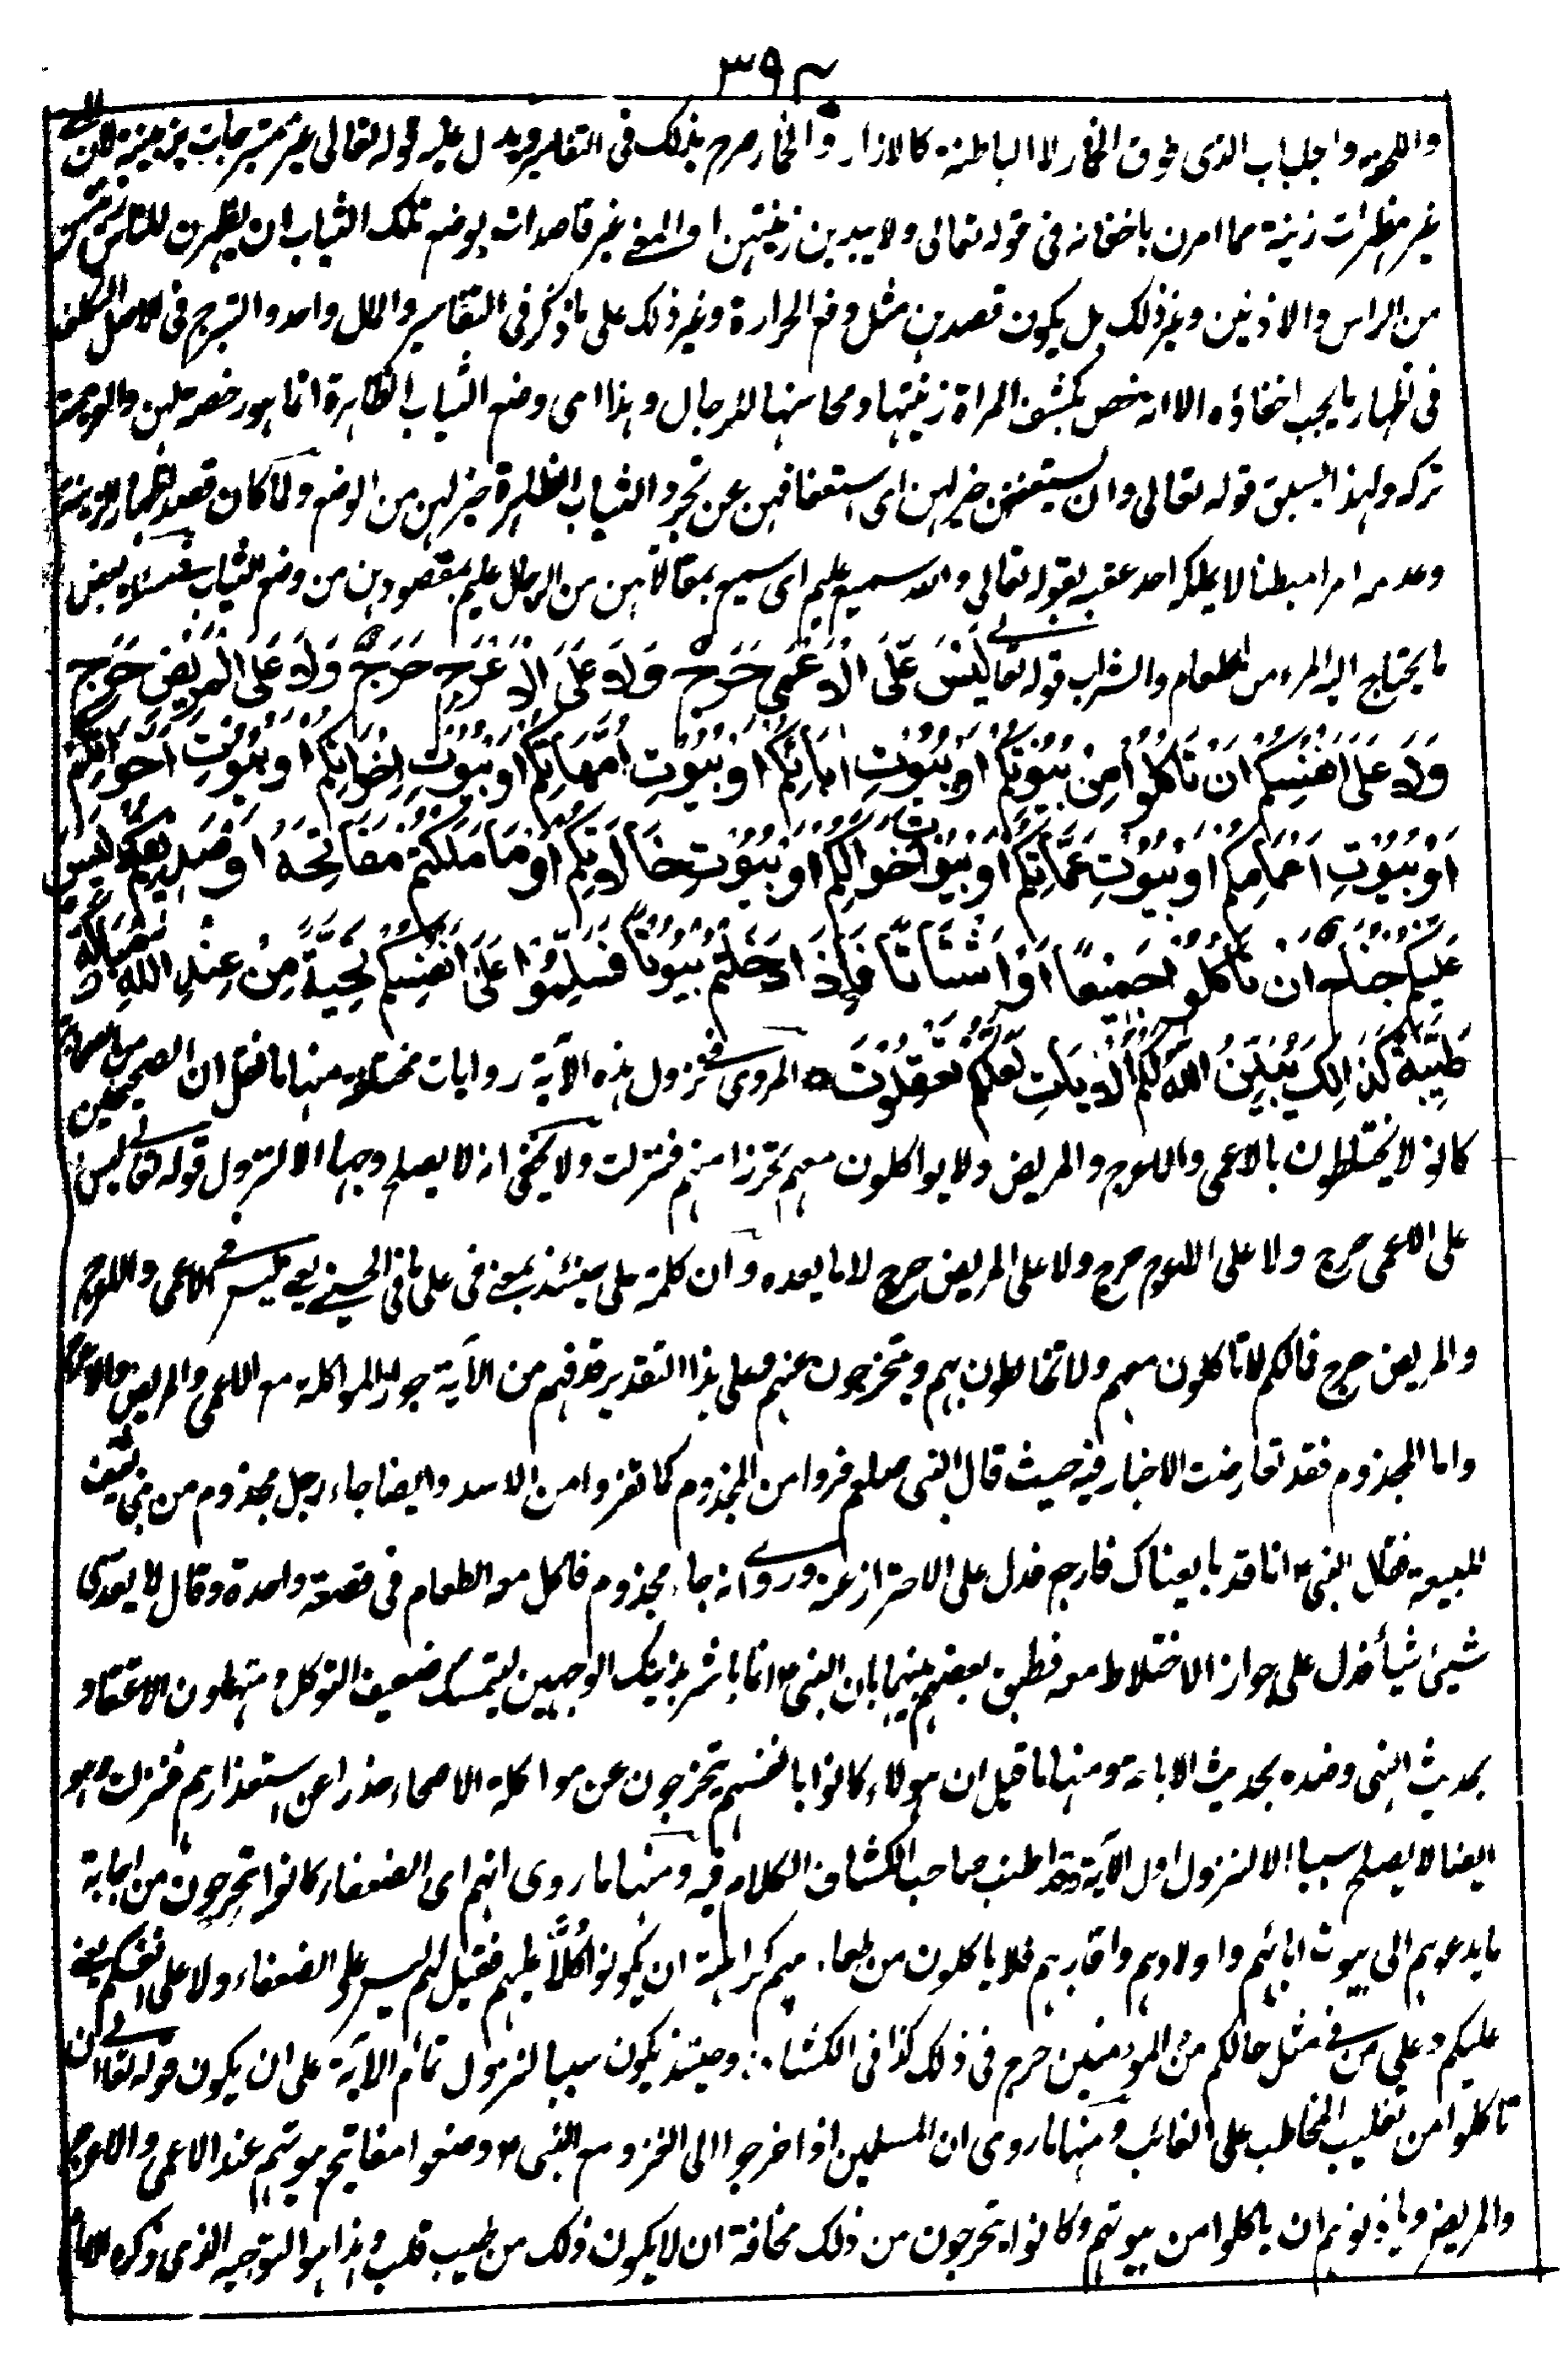 ٣٩٢
والملحفة والجلباب الذى فوق الخمار لا الباطنة كالازار والخمار صرح بذلك فى التفاسير ويدل عليه قوله تعالى غير متبرجات بزينة لان المعنى
غير مظهرات زينة مما امرن باخفائه فى قوله تعالى ولا يبدين زينتهن او المعنى غير قاصدات بوضع تلك الثياب ان يظهرن للناس
من الراس والاذنين وغير ذلك بل يكون قصدهن مثل دفع الحرارة وغير ذلك على ما ذكر فى التفاسير والمآل واحد والتبرج فى الاصل التكلف
فى اظهار ما يجب اخفاؤه الا انه خص بكشف المراة زينتها ومحاسنها للرجال وهذا اى وضع الثياب الظاهرة انما هو رخصة لهن والعزيمة
تركه ولهذا استبق قوله تعالى وان يستعففن خير لهن اى استعفافهن عن تجرد الثياب الظاهرة خير لهن من الوضع ولما كان قصد اظهار الزينة
وعدمه امرا مبطنا لا يملكه احد عقبه بقوله تعالى والله سميع عليم اى سميع بمقالاتهن من الرجال عليم بمقصودهن من وضع الثياب بعض
ما يحتاج اليه المرء من الطعام والشراب قوله تعالى لَيْسَ عَلَى الْاَعْمٰى حَرَجٌ وَلَا عَلَى الْاَعْرَجِ حَرَجٌ وَلَا عَلَى الْمَرِيْضِ حَرَجٌ
وَلَا عَلٰى اَنْفُسِكُمْ اَنْ تَاْكُلُوْا مِنْ بُيُوْتِكُمْ اَوْ بُيُوْتِ اٰبَائِكُمْ اَوْ بُيُوْتِ اُمَّهَاتِكُمْ اَوْ بُيُوْتِ اِخْوَانِكُمْ اَوْ بُيُوْتِ اَخَوَاتِكُمْ
اَوْ بُيُوْتِ اَعْمَامِكُمْ اَوْ بُيُوْتِ عَمَّاتِكُمْ اَوْ بُيُوْتِ اَخْوَالِكُمْ اَوْ بُيُوْتِ خَالَاتِكُمْ اَوْ مَا مَلَكْتُمْ مَفَاتِحَهٗ اَوْ صَدِيْقِكُمْ لَيْسَ
عَلَيْكُمْ جُنَاحٌ اَنْ تَاْكُلُوْا جَمِيْعًا اَوْ اَشْتَاتًا فَاِذَا دَخَلْتُمْ بُيُوْتًا فَسَلِّمُوْا عَلٰى اَنْفُسِكُمْ تَحِيَّةً مِنْ عِنْدِ اللّٰهِ مُبَارَكَةً
طَيِّبَةً كَذٰلِكَ يُبَيِّنُ اللّٰهُ لَكُمُ الْاٰيٰتِ لَعَلَّكُمْ تَعْقِلُوْنَ المروى فى نزول هذه الآية روايات مختلفة منها ما نقل ان الصحيحين من الصحابة
كانوا لا يختلطون بالاعمى والاعرج والمريض ولا يواكلون معهم تحرزا منهم فنزلت ولا يخفى انه لا يصلح وجها الا لنزول قوله تعالى ليس
على الاعمى حرج ولا على الاعرج حرج ولا على المريض حرج لا ما بعده وان كلمة على حينئذ بمعنى فى على ما فى الحسينى يعنى ليس فى الاعمى والاعرج
والمريض حرج فما لكم لا تاكلون معهم ولا تخالطون بهم وتتحرجون عنهم فعلى هذا التقدير قد فهم من الآية جواز المواكلة مع الاعمى والمريض والاعرج
واما المجذوم فقد تعارضت الاخبار فيه حيث قال النبى صلعم فروا من المجذوم كما تفروا من الاسد وايضا جاء رجل مجذوم من بنى ثقيف
للبيعة فقال النبى انا قد بايعناك فارجع فدل على الاحتراز عنه وروى انه جاء مجذوم فاكل معه الطعام فى قصعة واحدة وقال لا يعدى
شيئ شيأ فدل على جواز الاختلاط معه فطبق بعضهم بينهما بان النبى انما باشر بذينك الوجهين ليتمسك ضعيف التوكل ومتهاون الاعتقاد
بحديث النهى وضده بحديث الاباحة ومنها ما قيل ان هولاء كانوا بانفسهم يتحرجون عن مواكلة الاصحاء حذرا عن استقذارهم فنزلت وهو
ايضا لا يصلح سببا الا لنزول اول الآية وقد اطنب صاحب الكشاف الكلام فيه ومنها ما روى انهم اى الضعفاء كانوا يتحرجون من اجابة
ما يدعوهم الى بيوت ابائهم واولادهم واقاربهم فلا ياكلون من طعامهم كراهة ان يكونوا كلًّا عليهم فقيل لهم ليس على الضعفاء ولا على انفسكم يعنى
عليكم وعلى من فى مثل حالكم من المؤمنين حرج فى ذلك كذا فى الكشاف وحينئذ يكون سببا لنزول تمام الآية على ان يكون قوله تعالى ان
تاكلوا من تغليب المخاطب على الغائب ومنها ما روى ان المسلمين اذا خرجوا الى الغزو مع النبى وضعوا مفاتيح بيوتهم عند الاعمى والاعرج
والمريض وياذنونهم ان ياكلوا من بيوتهم وكانوا يتحرجون من ذلك مخافة ان لا يكون ذلك من طيب قلب وهذا هو التوجيه الذى ذكره الامام